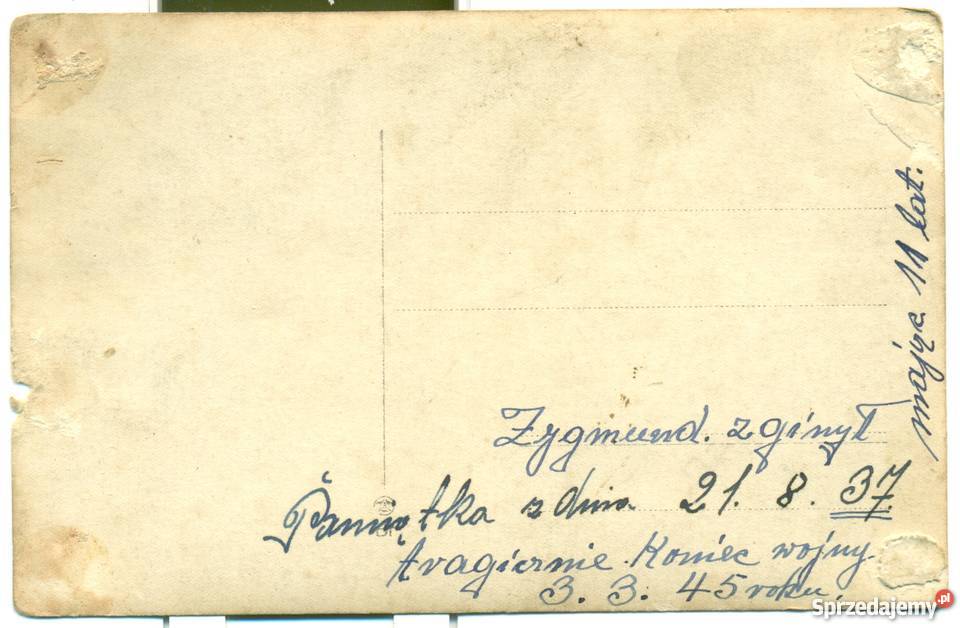 Zygmund. zginął
Pamiątka z dnia 21. 8. 37.
tragicznie. Koniec wojny.
3. 3. 45 roku,
mając 11 lat.
Sprzedajemy.pl